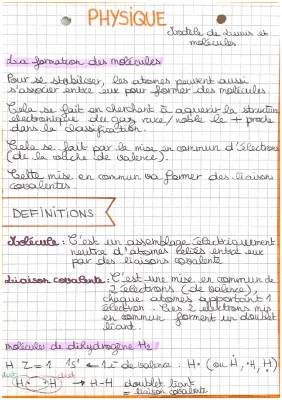 PHYSIQUE
Modèle de Lewis et
molécules
La formation des molécules
Pour se stabiliser, les atomes peuvent aussi
s'associer entre eux pour former des molécules.
Cela se fait en cherchant à aquerir la structure
électronique du gaz rare/noble le + proche
dans la classification.
Cela se fait par la mise en commun d'électrons
(de la couche de valence).
Cette mise en commun va former des liaisons
covalentes.
DEFINITIONS
Molécule : C'est un assemblage électriquement
neutre d'atomes reliés entre eux
par des liaisons covalente
Liaison covalente : C'est une mise en commun de
2 électrons (de valence),
chaque atomes apportant 1
électron. Ces 2 électrons mis
en commun forment un doublet
liant.
molécule de dihydrogène H₂
H Z=1 1s¹ ← 1e⁻ de valence : H• (ou Ḣ, •H, H)
H• •H → H-H doublet liant
= liaison covalente